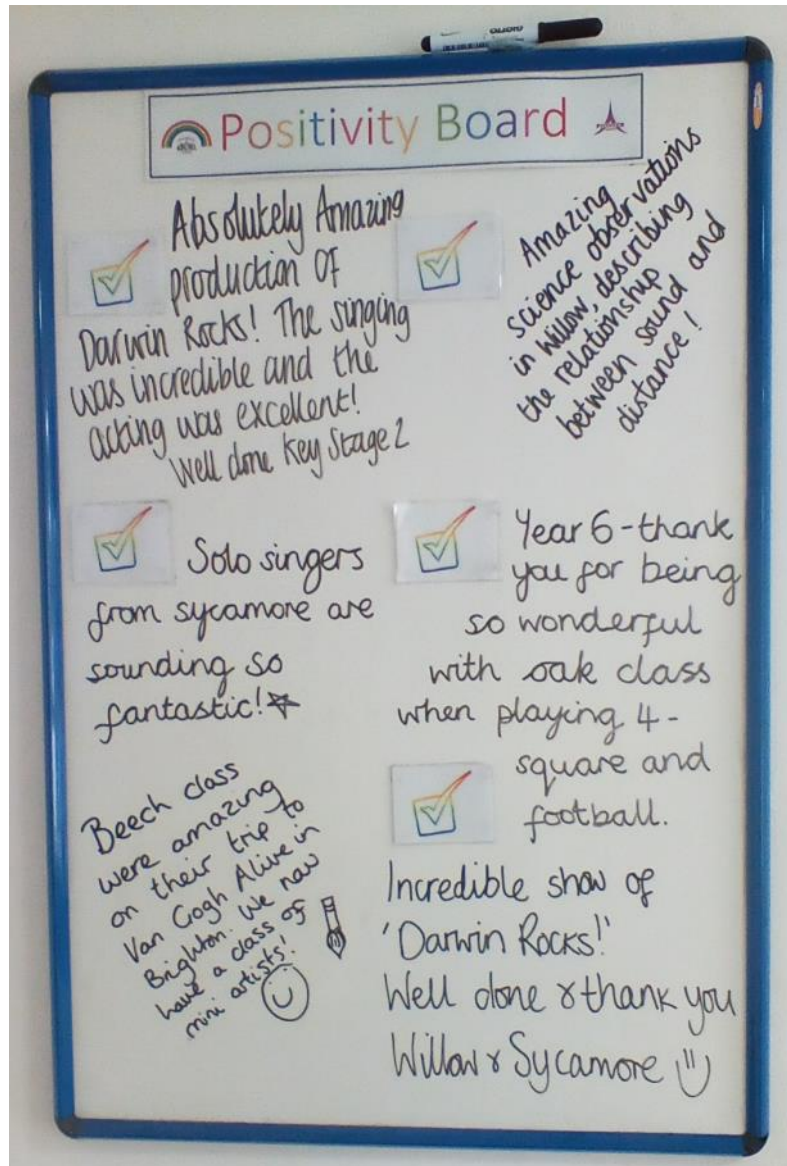 Positivity Board
Absolutely Amazing
production OF
Darwin Rocks! The singing
was incredible and the
acting was excellent!
Well done Key Stage 2
Amazing
science observations
in Willow, describing
the relationship
between sound and
distance!
Solo singers
from sycamore are
sounding so
fantastic!
Year 6 - thank
you for being
so wonderful
with oak class
when playing 4-
square and
football.
Beech class
were amazing
on their trip to
Van Gogh Alive in
Brighton. We now
have a class of
mini artists!
Incredible show of
'Darwin Rocks!'
Well done & thank you
Willow & Sycamore